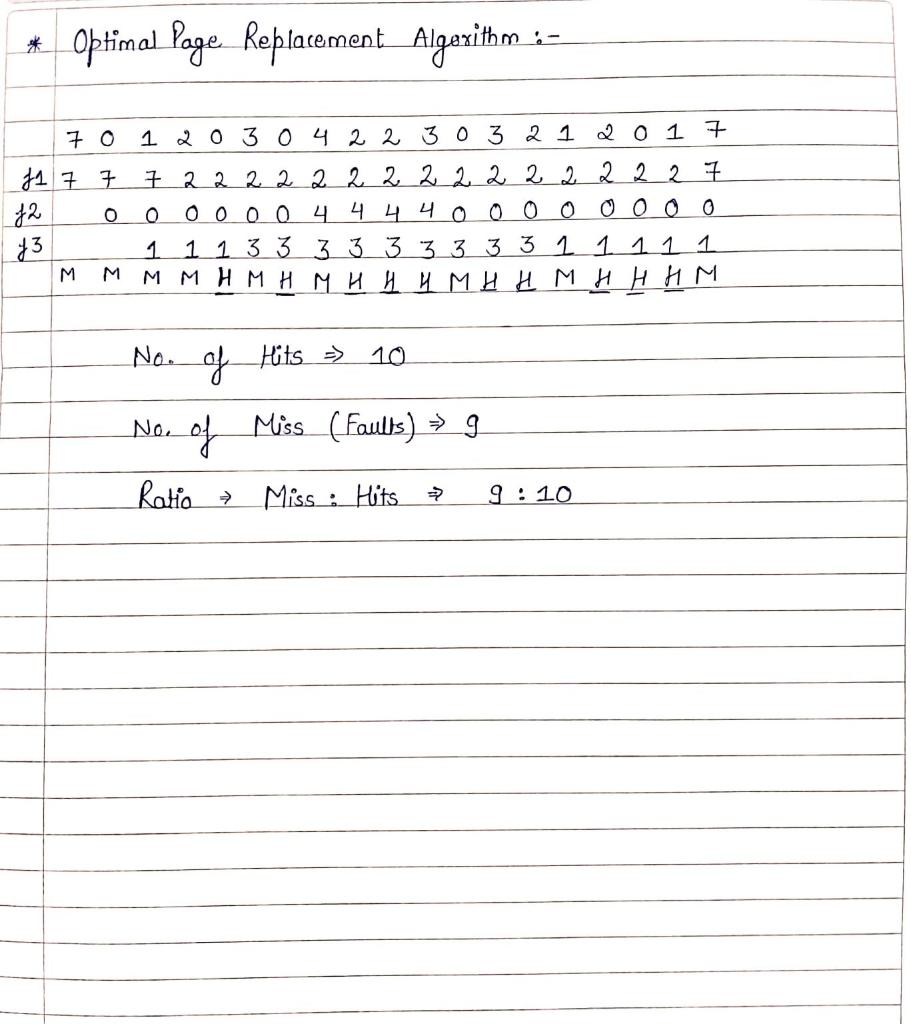 * Optimal Page Replacement Algorithm :-
7 0 1 2 0 3 0 4 2 2 3 0 3 2 1 2 0 1 7
f1 7 7 7 2 2 2 2 2 2 2 2 2 2 2 2 2 2 2 7
f2 0 0 0 0 0 0 4 4 4 4 0 0 0 0 0 0 0 0
f3 1 1 1 3 3 3 3 3 3 3 3 3 1 1 1 1 1
M M M M H M H M H H H M H H M H H H M
No. of Hits ⇒ 10
No. of Miss (Faults) ⇒ 9
Ratio → Miss : Hits ⇒ 9 : 10